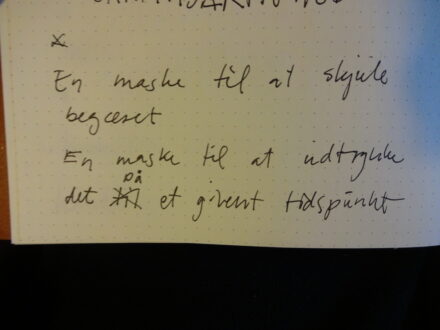 x
En maske til at skjule
begæret
En maske til at udtrykke
det på et givent tidspunkt